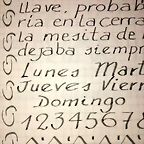 llave, probab
ría en la cerra
la mesita de
dejaba siempr
Lunes Mart
Jueves Vierr
Domingo
12345678